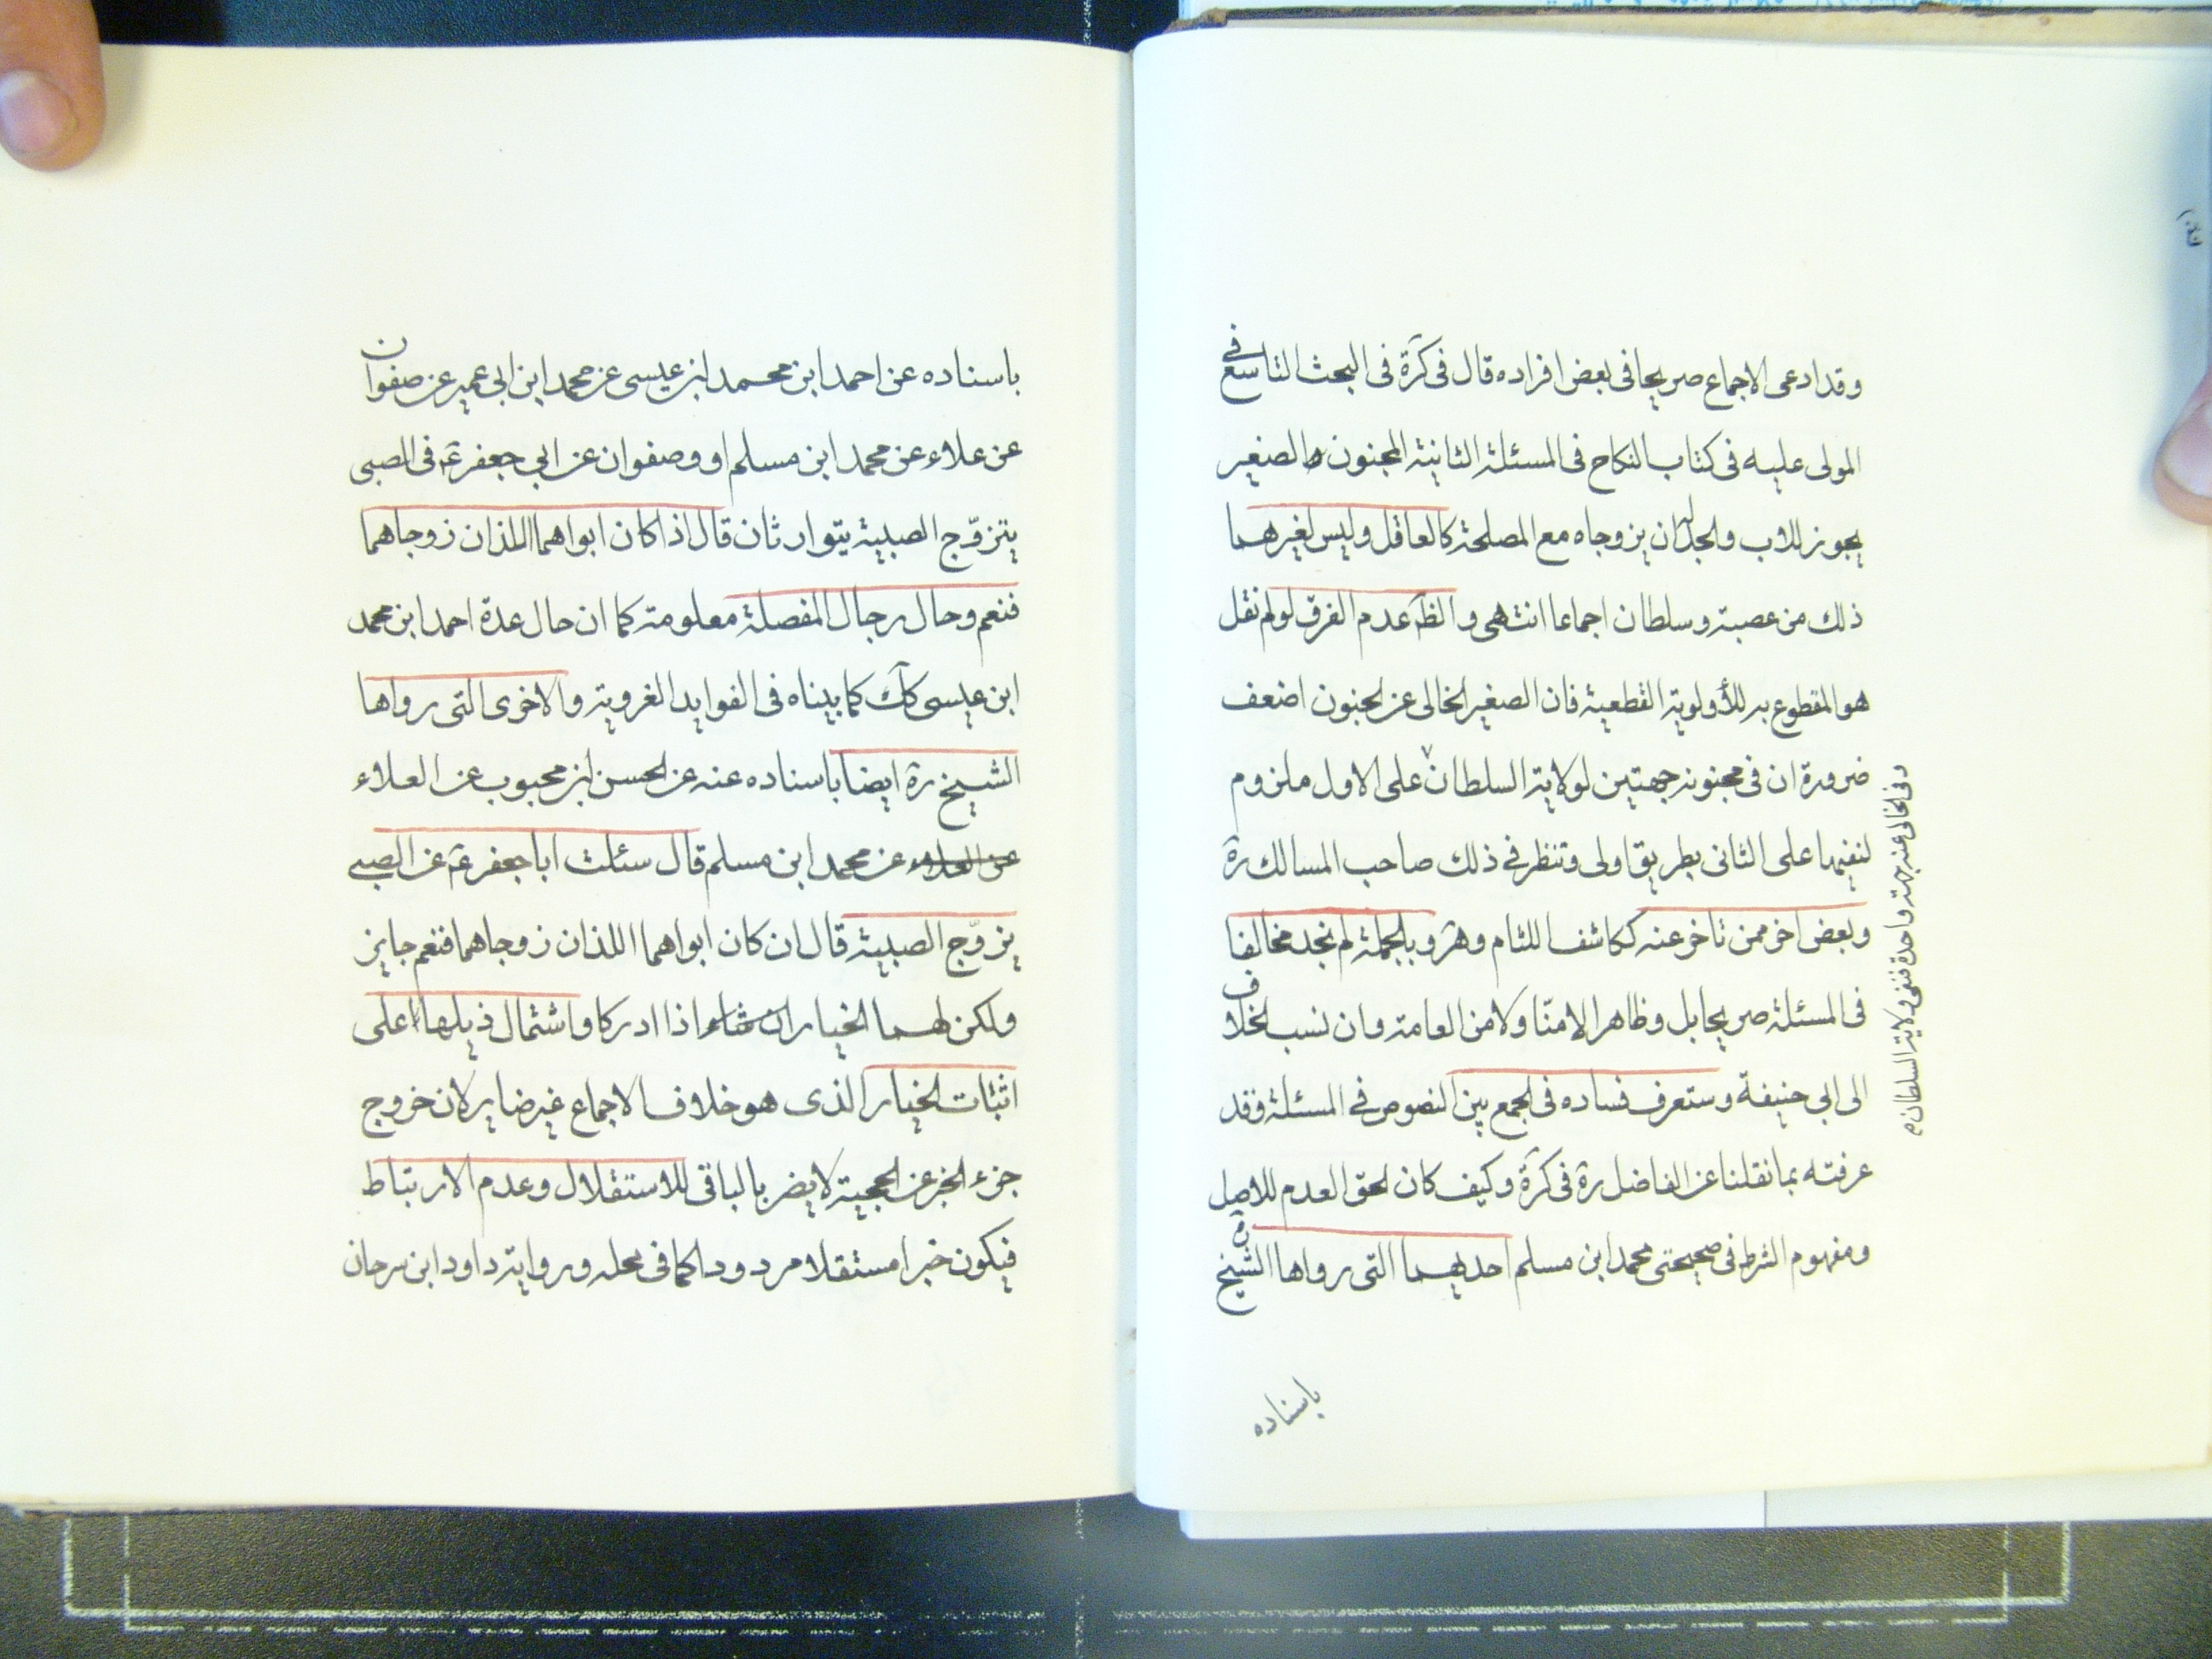 وقد ادعى الاجماع صريحا فى بعض افراده قال فى كرة فى البحث التاسع فى
المولى عليه فى كتاب النكاح فى المسئلة الثانية المجنون الصغير
يجوز للاب والجد له ان يزوجاه مع المصلحة كالعاقل وليس لغيرهما
ذلك من عصبة وسلطان اجماعا انتهى والظ عدم الفرق لو لم نقل
هو المقطوع به للأولوية القطعية فان الصغير الخالى عن الجنون اضعف
ضرورة ان فى مجنونه جهتين لولاية السلطان على الاول ملزوم
لنفيها على الثانى بطريق اولى وتنظر فى ذلك صاحب المسالك ره
وبعض اخر ممن تاخر عنه ككاشف اللثام وهو وبالجملة لم نجد مخالفا
فى المسئلة صريحا بل وظاهرا لا منّا ولا من العامة وان نسب الخلاف
الى ابى حنيفة وستعرف فساده فى الجمع بين النصوص فى المسئلة وقد
عرفته بما نقلنا عن الفاضل ره فى كرة وكيف كان لحق العدم للاصل
ومفهوم الشرط فى صحيحتى محمد ابن مسلم احديهما التى رواها الشيخ ره
وفى الخالى عنه جهة واحدة فنفى ولاية السلطان م
باسناده
باسناده عن احمد ابن محمد ابن عيسى عن محمد ابن ابى عمير عن صفوان
عن علاء عن محمد ابن مسلم او وصفوان عن ابي جعفر ع فى الصبى
يتزوّج الصبية يتوارثان قال اذا كان ابواهما اللذان زوجاهما
فنعم وحال رجال المفصلة معلومة كما ان حال عدة احمد ابن محمد
ابن عيسى كك كما بيناه فى الفوايد الغروية والاخرى التى رواها
الشيخ ره ايضا باسناده عنه عن الحسن ابن محبوب عن العلاء
عن العلاء عن محمد ابن مسلم قال سئلت ابا جعفر ع عن الصبى
يزوّج الصبية قال ان كان ابواهما اللذان زوجاهما فنعم جايز
ولكن لهما الخيار اذا ادركا واشتمال ذيلها على
اثبات الخيار الذى هو خلاف الاجماع غير ضاير لان خروج
جزء الخبر عن الحجية لا يضر بالباقى للاستقلال وعدم الارتباط
فيكون خبرا مستقلا مردودا كما فى محله ورواية داود ابن سرحان